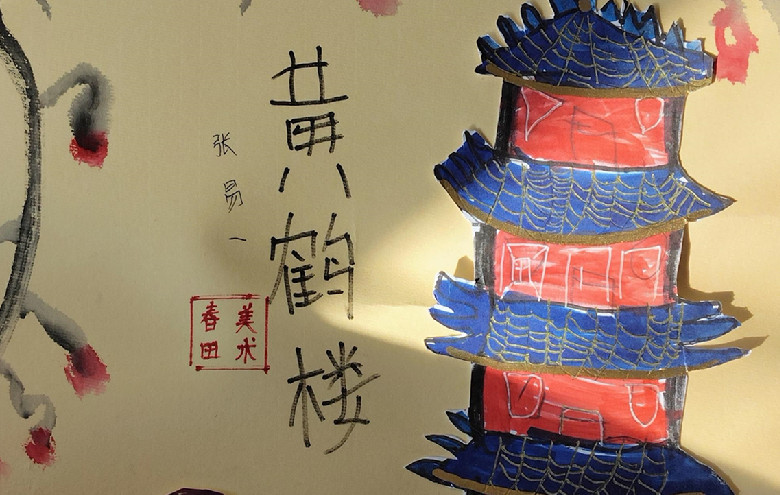 黄鹤楼
张易一
美术
春田